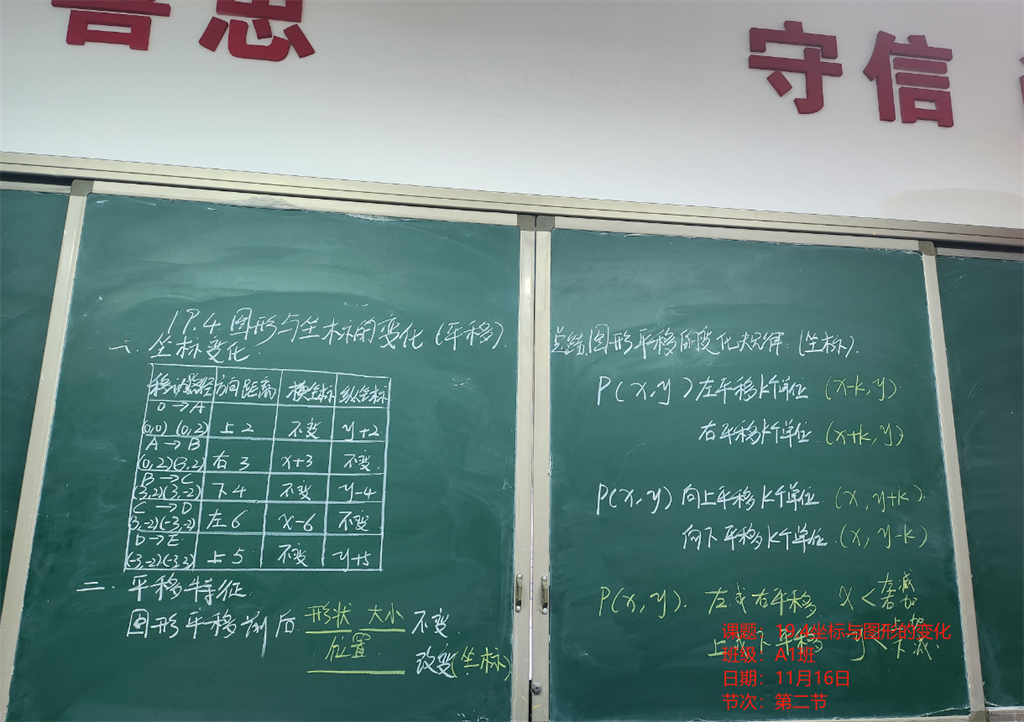 善思
守信
19.4 图形与坐标的变化(平移).
一. 坐标变化.
移动路径 方向距离 横坐标 纵坐标
O→A
(0,0) (0,2) 上2 不变 y+2
A→B
(0,2)(3,2) 右3 x+3 不变.
B→C
(3,2)(3,-2) 下4 不变 y-4
C→D
(3,-2)(-3,-2) 左6 x-6 不变
D→E
(-3,-2)(-3,3) 上5 不变 y+5
二. 平移特征
图形平移前后 形状 大小 不变.
位置 改变(坐标)
总结:图形平移的变化规律:(坐标).
P(x,y)左平移k个单位 (x-k,y)
右平移k个单位.(x+k,y)
P(x,y)向上平移k个单位 (x,y+k).
向下平移k个单位.(x,y-k)
P(x,y). 左或右平移 x< 左减 右加
上或下平移 y< 上加 下减.
课题:19.4坐标与图形的变化
班级:A1班
日期:11月16日
节次:第二节